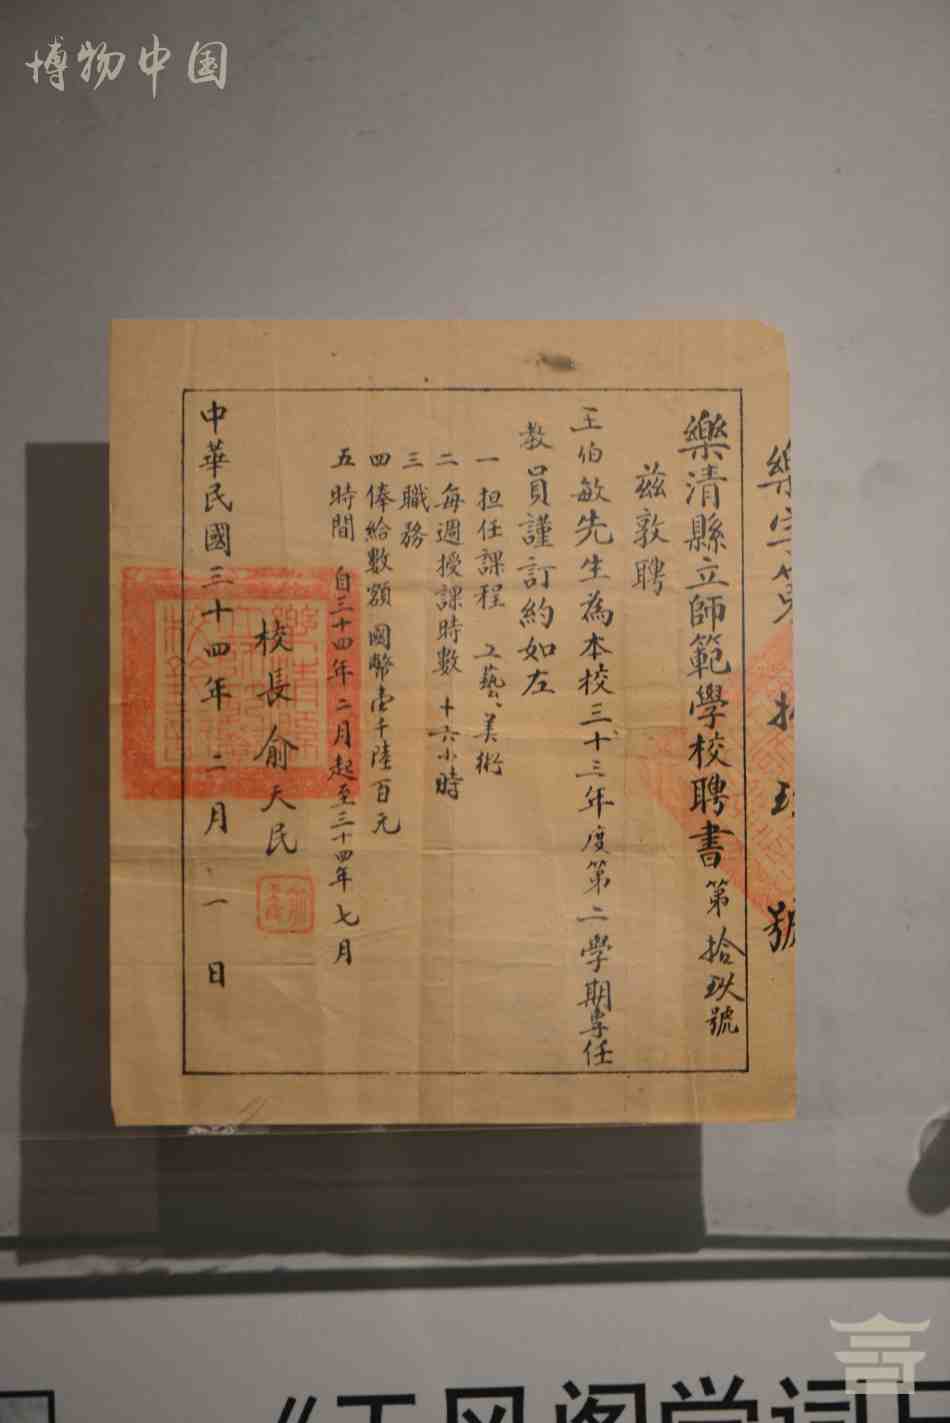 博物中国
樂字第拾玖號
樂清縣立師範學校聘書第拾玖號
茲敦聘
王伯敏先生為本校三十三年度第二學期專任
教員謹訂約如左
一 担任課程 工藝、美術
二 每週授課時數 十六小時
三 職務
四 俸給數額 國幣壹千陸百元
五 時間 自三十四年二月起至三十四年七月
校長俞天民
中華民國三十四年二月一日